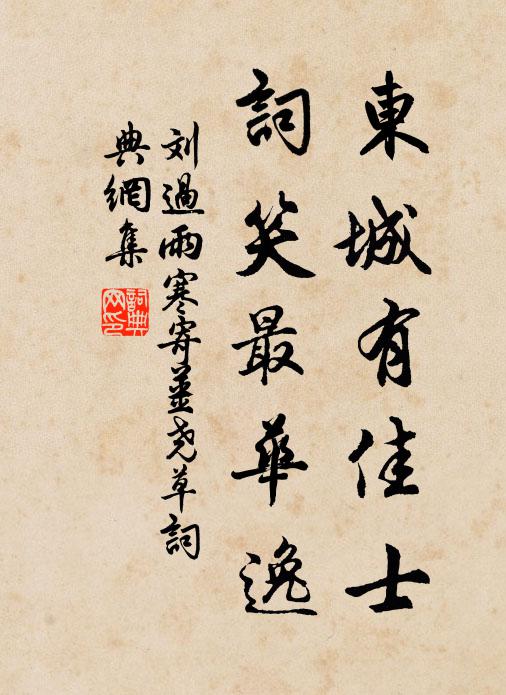 東城有佳士
詞笑最華逸
刘過雨寒寄姜尧草詞
典網集
詞典
网印